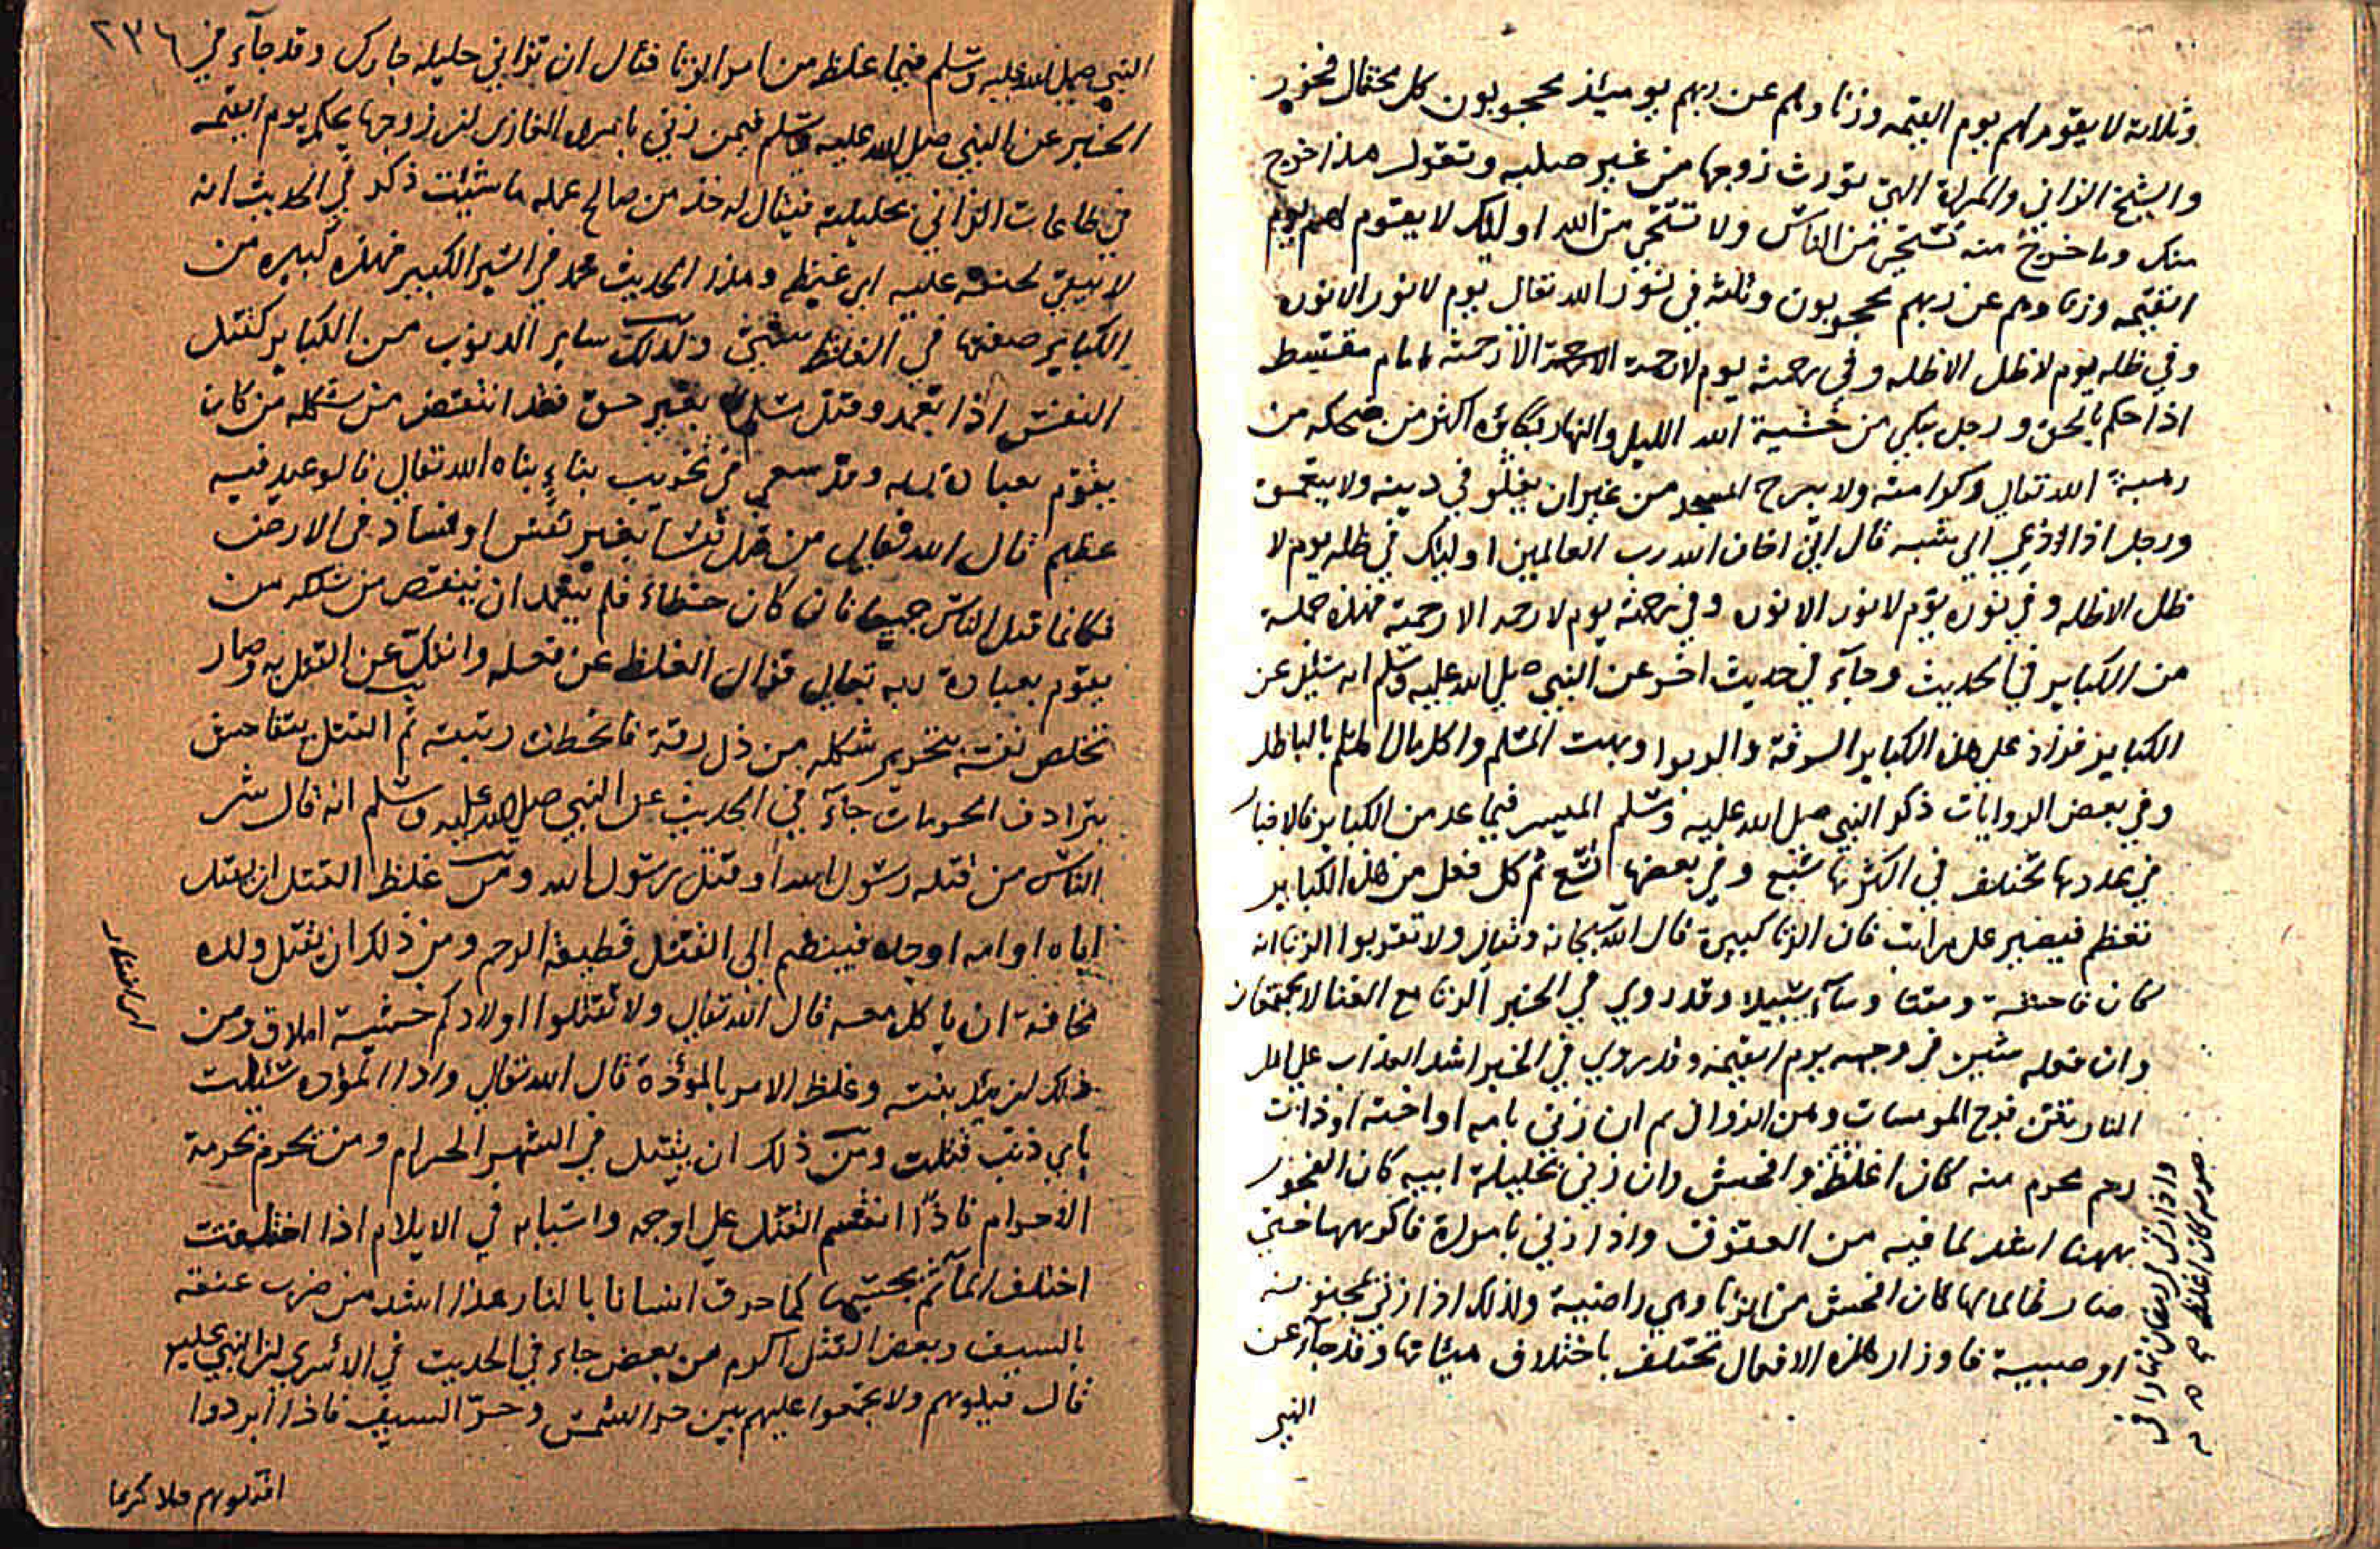 وثلاثة لا يقوم لهم يوم القيمه وزنا وهم عن ربهم يوميذ محجوبون كل مختال فخور
والشيخ الزاني والمراة التي تورث زوجها من غير صلبه وتقول هذا خرج
منك وما خرج منه تستحي من الناس ولا تستحي من الله اوليك لا يقوم لهم يوم
القيمه وزنا وهم عن ربهم محجوبون وثلثه في نور الله تعالى يوم لا نور الا نوره
وفي ظله يوم لا ظل الا ظله وفي رحمته يوم لا رحمة الا رحمته امام مقسط
اذا حكم بالحق ورجل يبكي من خشية الله الليل والنهار بكاؤه اكثر من ضحكه من
رهبة الله تعالى وكرامته ولا يبرح المسجد من غير ان يغلو في دينه ولا يتعمق
ورجل اذا دعي الى شبه قال اني اخاف الله رب العالمين اوليك في ظله يوم لا
ظل الا ظله وفي نوره يوم لا نور الا نوره وفي رحمته يوم لا رحمه الا رحمته فهذه جملة
من الكباير في الحديث وجآء في حديث اخر عن النبي صلى الله عليه وسلم انه سئل عن
الكباير فزاد على هذه الكباير السرقة والربوا وبهت المسلم واكل مال المسلم بالباطل
وفي بعض الروايات ذكر النبي صلى الله عليه وسلم الميسر فيما عد من الكباير فالاخبار
في عددها تختلف في اكثرها سبع وفي بعضها تسع ثم كل فعل من هذه الكباير
تغلظ فيصير على مراتب فان الزنا كبيرة قال الله سبحانه وتعالى ولا تقربوا الزنا انه
كان فاحشة ومقتا وسآء سبيلا وقد روي في الخبر الزنا مع الغنا لا يجتمعان
وان فعله شين في وجهه يوم القيمه وقد روي في الخبر اشد العذاب على اهل
النار نتن فروج المومسات ومن الزواني ثم ان زنى بامه او اخته او ذات
رحم محرم منه كان اغلظ وافحش وان زنى بحليلة ابيه كان الفجور
بهذا اشد لما فيه من العقوق واذا زنى بامراة فاكرهها حتى
صار ظالما لها كان افحش من الزنا وهي راضية ولذلك اذا زنى بمجنونه
او صبية فاوزار هذه الافعال تختلف باختلاف هيئاتها وقد جآء عن
النبي
واذا زنى في رمضان نهارا في
صومه كان اغلظ
٢٣٦
النبي صلى الله عليه وسلم فيما غلظ من امر الزنا فقال ان تزاني حليله جارك وقد جآء في
الخبر عن النبي صلى الله عليه وسلم فيمن زنى بامراة الغازي ان زوجها يحكم يوم القيمه
في طاعات الزاني بحليلته فيقال له خذ من صالح عمله ما شئت ذكر في الحديث انه
لا يبقي لحنقه عليه اي غيظه وهذا الحديث محمد في السير الكبير فهذه كبيره من
الكباير صفتها في الغلظ شتى وكذلك ساير الذنوب من الكباير كقتل
النفس اذا تعمد وقتل مسلم بغير حق فقد انتقص من شكله من كان
يقوم بعبادة ربه وقد سعى في تخريب بناء بناه الله تعالى فالوعيد فيه
عظيم قال الله تعالى من قتل نفسا بغير نفس او فساد في الارض
فكانما قتل الناس جميعا فان كان خطاء فلم يتعمد ان ينتقص من شكله من
يقوم بعبادة ربه تعالى فزال الغلظ عن فعله وانفك عن القتل به وصار
تخلص نفسه بتحرير شكله من ذل رقه فانحطت رتبته ثم القتل يتفاحش
بترادف الحرمات جآء في الحديث عن النبي صلى الله عليه وسلم انه قال شر
الناس من قتله رسول الله او قتل رسول الله ومن غلظ القتل ان يقتل
اباه او امه او جده فينضم الى القتل قطيعة الرحم ومن ذلك ان يقتل ولده
مخافة ان ياكل معه قال الله تعالى ولا تقتلوا اولادكم خشية املاق ومن
ذلك ان يئد بنته وغلظ الامر بالموؤدة قال الله تعالى واذا الموؤده سئلت
باي ذنب قتلت ومن ذلك ان يقتل في الشهر الحرام ومن يحرم بحرمة
الاحرام فاذا انقسم القتل على اوجه واسبابه في الايلام اذا اختلفت
اختلف المآثم بحسبها كما حرق انسانا بالنار هذا اشد من ضرب عنقه
بالسيف وبعض القتل اكرم من بعض جاء في الحديث في الاسرى ان النبي عليه
قال قيلوهم ولا تجمعوا عليهم بين حر الشمس وحر السيف فاذا ابردوا
اقتلوهم